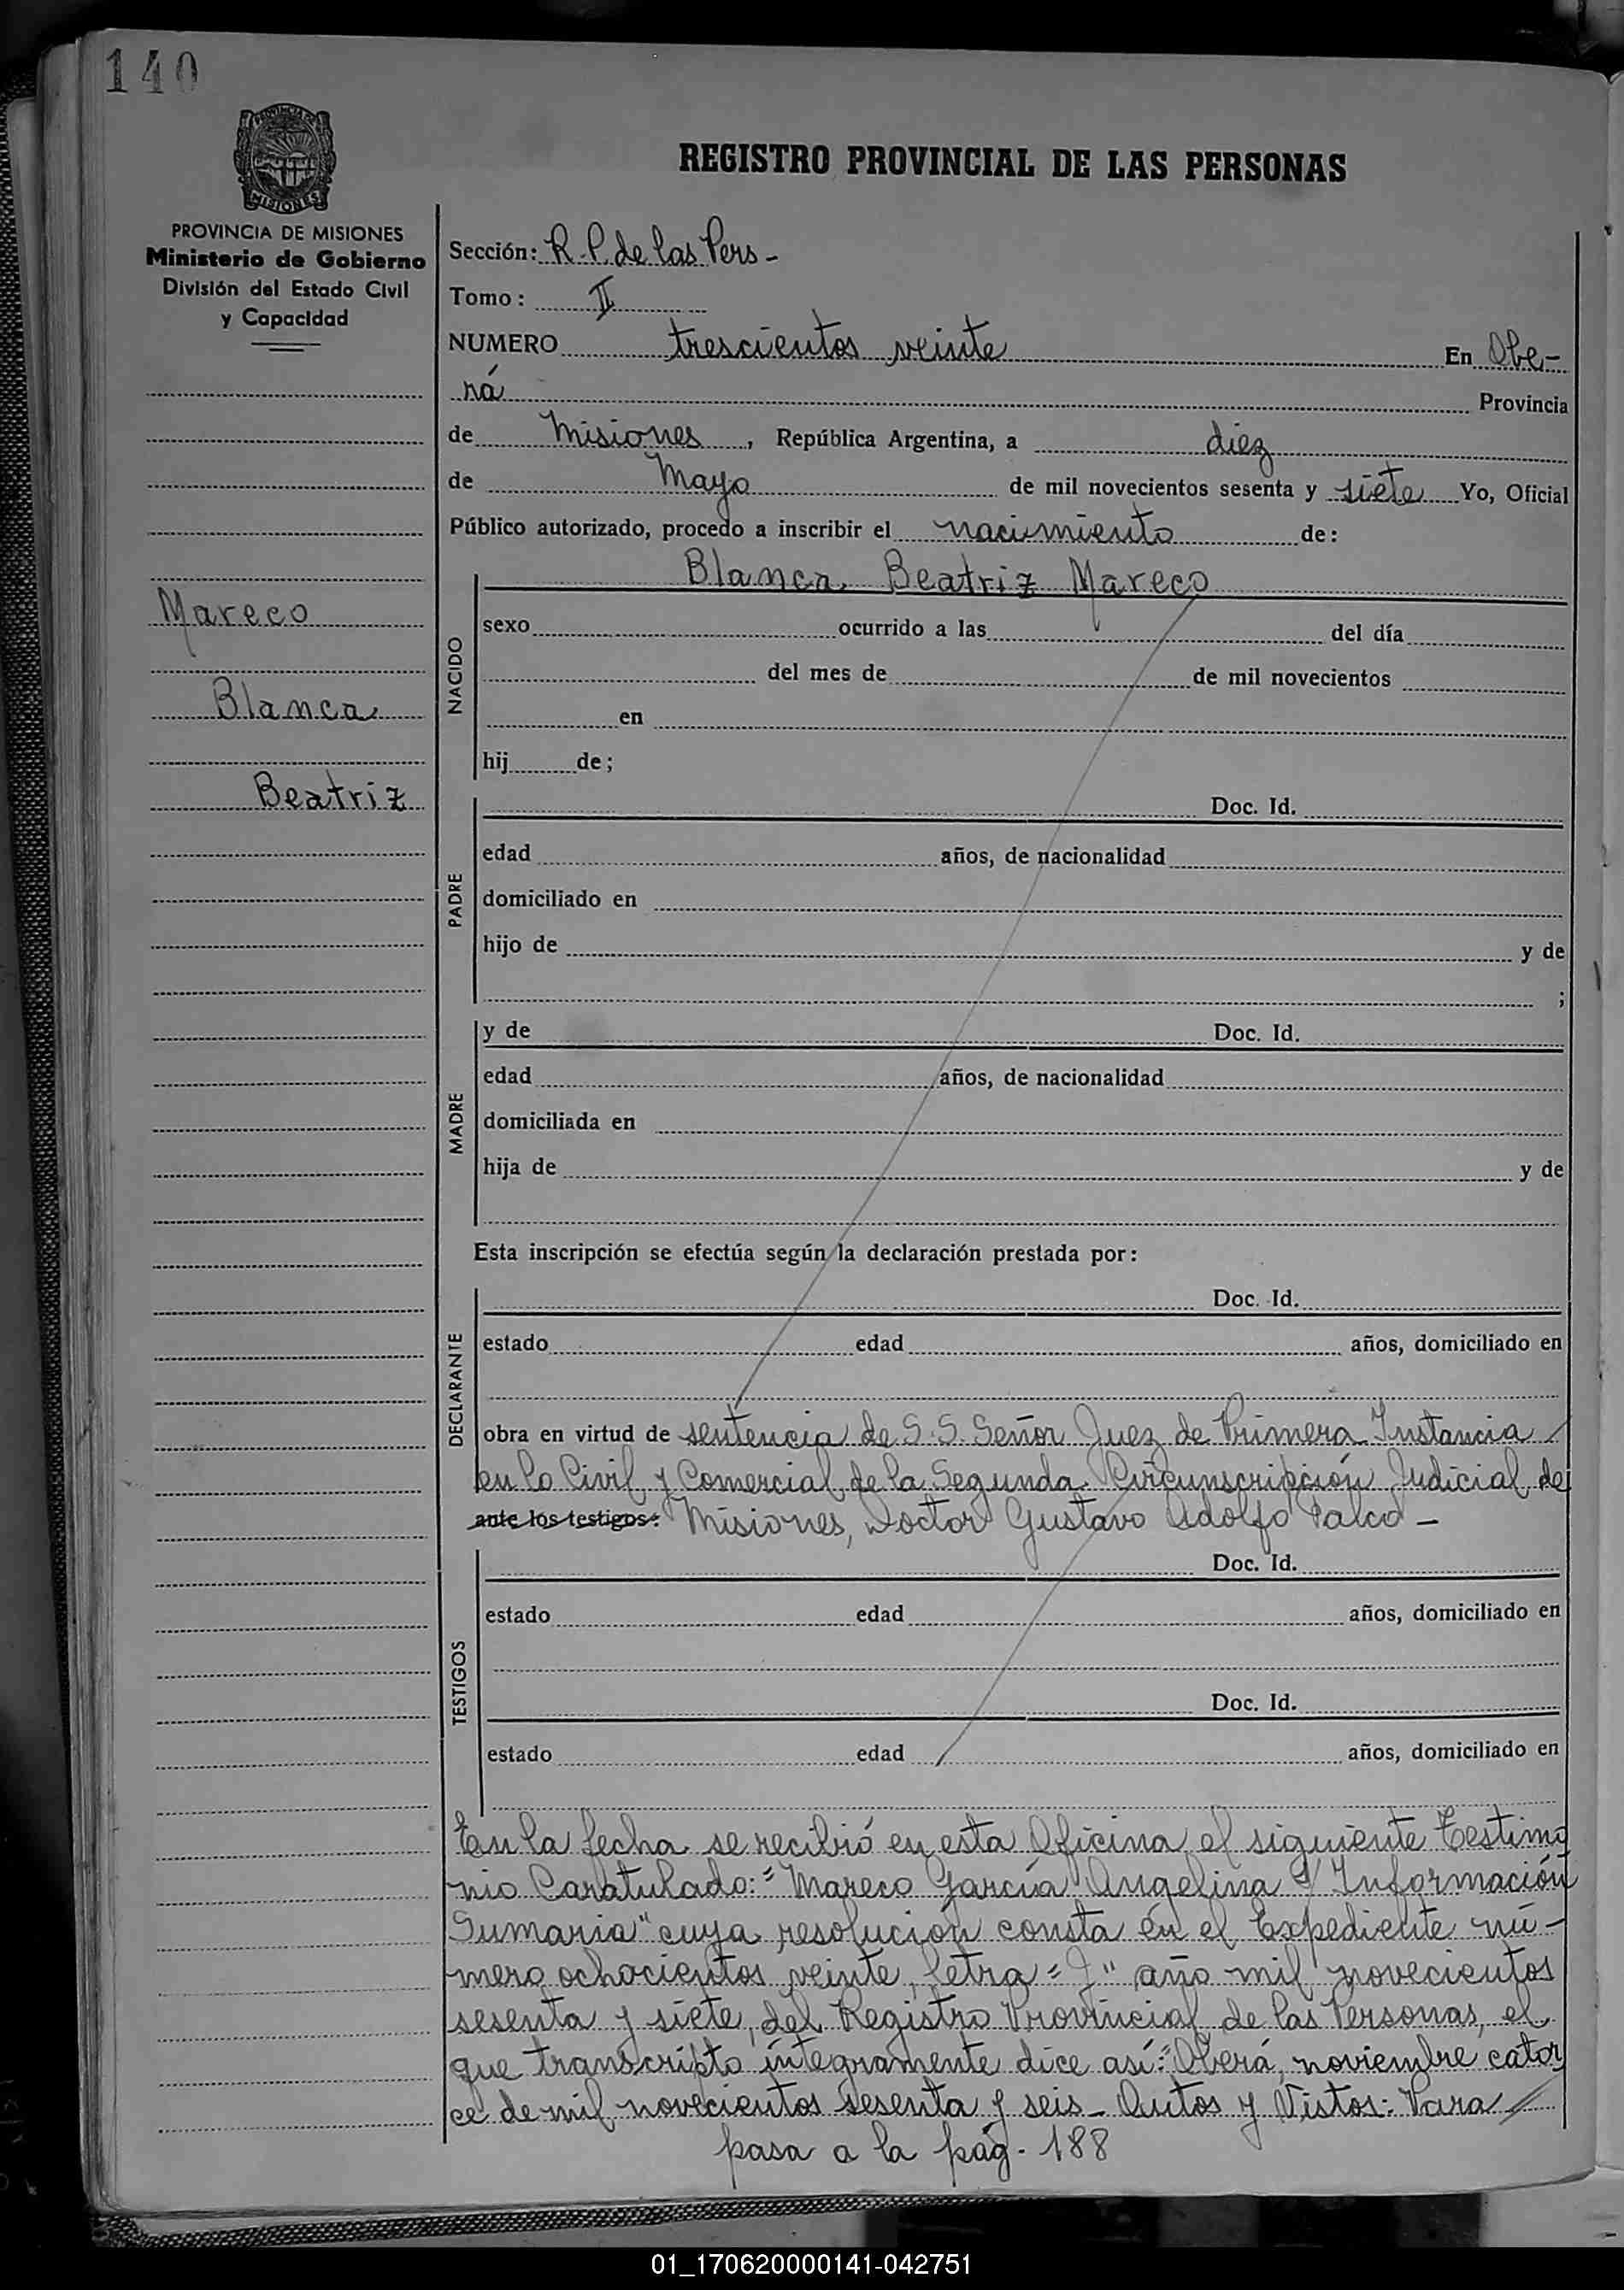 140
PROVINCIA DE
MISIONES
REGISTRO PROVINCIAL DE LAS PERSONAS
PROVINCIA DE MISIONES
Ministerio de Gobierno
División del Estado Civil
y Capacidad
Mareco
Blanca
Beatriz
Sección: R. P. de las Pers -
Tomo: II
NUMERO trescientos veinte En Obe-
rá Provincia
de Misiones, República Argentina, a diez
de Mayo de mil novecientos sesenta y siete Yo, Oficial
Público autorizado, procedo a inscribir el nacimiento de:
Blanca Beatriz Mareco
NACIDO
sexo ocurrido a las del día
del mes de de mil novecientos
en
hij de;
PADRE
Doc. Id.
edad años, de nacionalidad
domiciliado en
hijo de y de
;
MADRE
y de Doc. Id.
edad años, de nacionalidad
domiciliada en
hija de y de
Esta inscripción se efectúa según la declaración prestada por:
DECLARANTE
Doc. Id.
estado edad años, domiciliado en
obra en virtud de sentencia de S. S. Señor Juez de Primera Instancia
en lo Civil y Comercial de la Segunda Circunscripción Judicial de
ante los testigos: Misiones, Doctor Gustavo Adolfo -
TESTIGOS
Doc. Id.
estado edad años, domiciliado en
Doc. Id.
estado edad años, domiciliado en
En la fecha se recibió en esta Oficina el siguiente Testimo
nio Caratulado: "Mareco García Angelina s/ Información
Sumaria" cuya resolución consta en el Expediente nú-
mero ochocientos veinte, letra año mil novecientos
sesenta y siete, del Registro Provincial de las Personas, el
que transcripto íntegramente dice así: "Oberá, noviembre cator
ce de mil novecientos sesenta y seis - Autos y Vistos: Para
pasa a la pág. 188
01_170620000141-042751